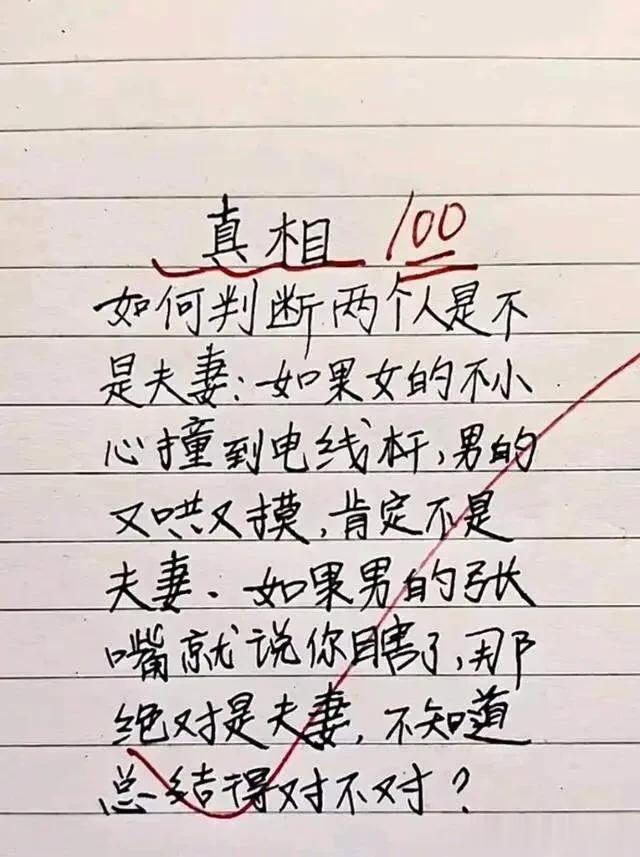 真相 100
如何判断两个人是不
是夫妻:如果女的不小
心撞到电线杆,男的
又哄又摸,肯定不是
夫妻、如果男的张
嘴就说你瞎了,那
绝对是夫妻,不知道
总结得对不对?